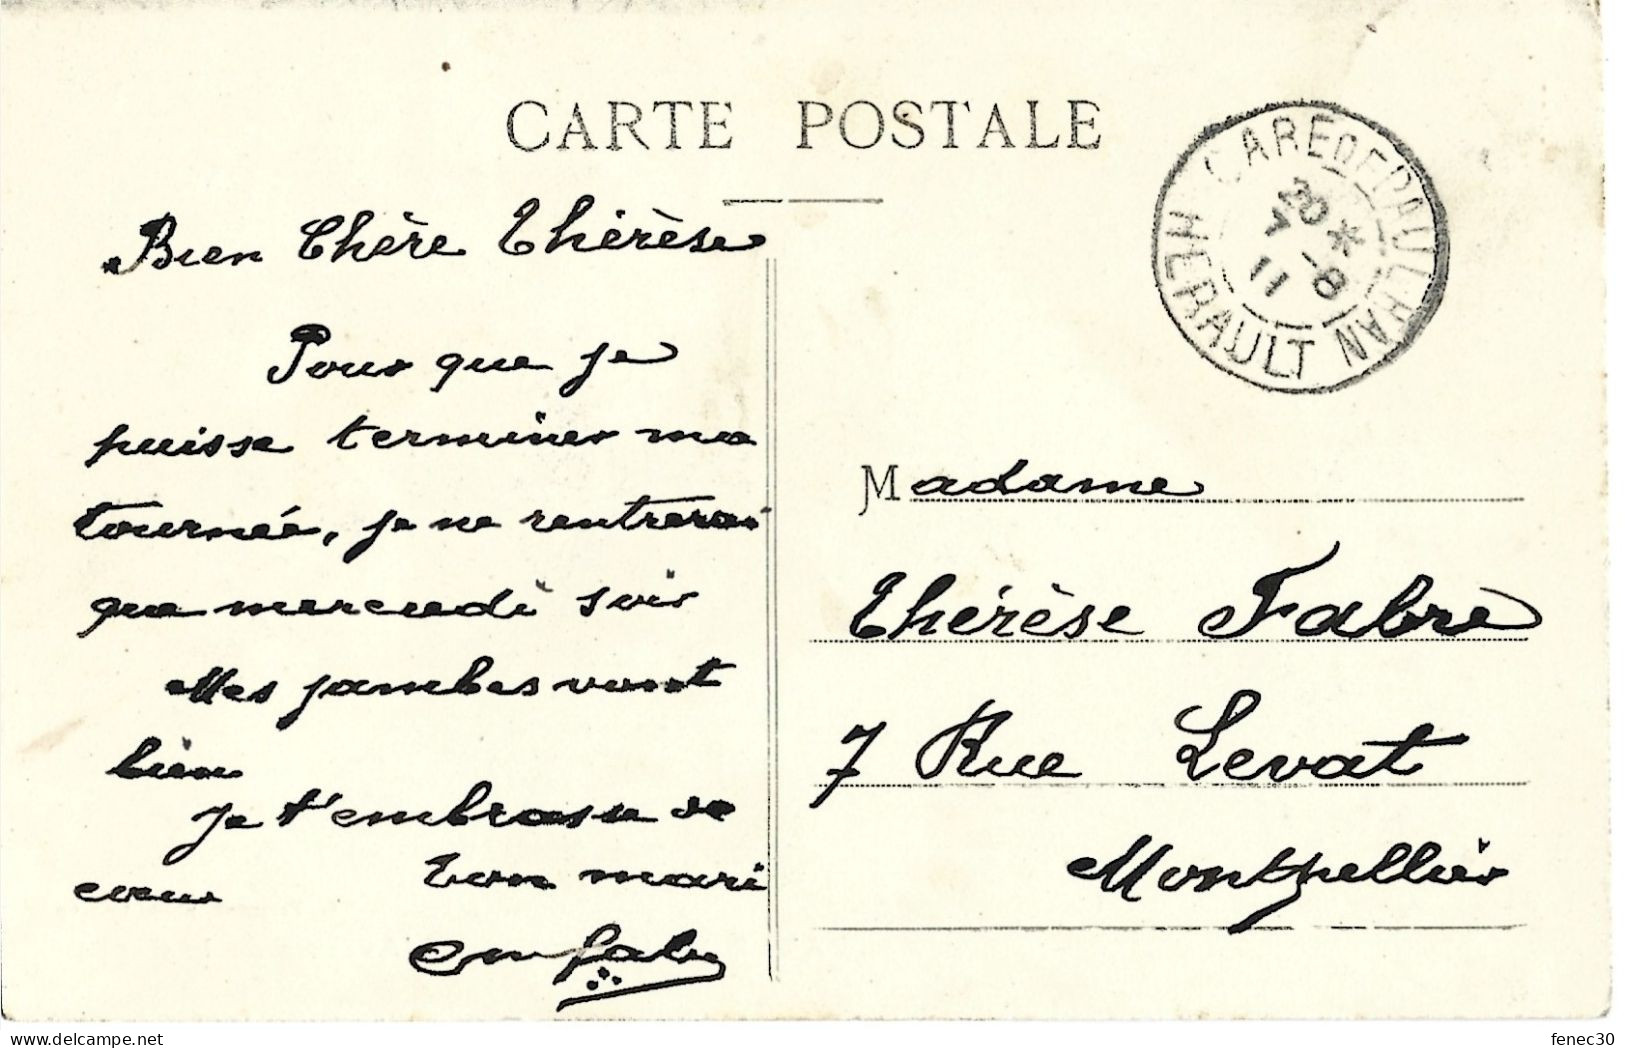 CARTE POSTALE
GARE DE PAULHAN
20 *
7 -8
11
HERAULT
Bien Chère Thérèse
Pour que je
puisse terminer ma
tournée, je ne rentrerai
que mercredi soir
Mes jambes vont
bien
je t'embrasse de
coeur ton mari
Madame
Thérèse Fabre
7 Rue Levat
Montpellier
fenec30